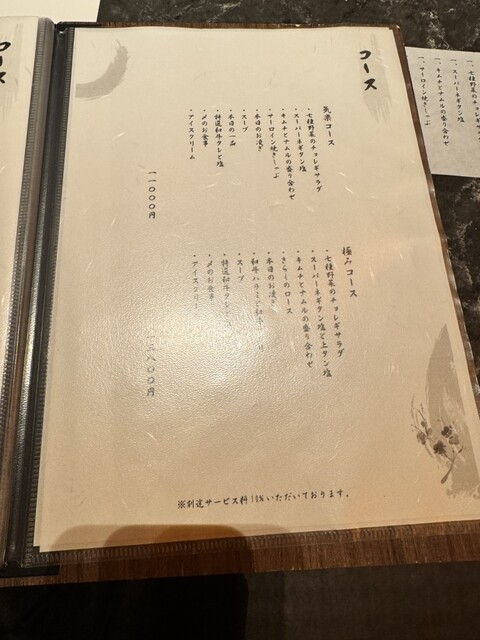 コース
気楽コース
・七種野菜のチョレギサラダ
・スーパーネギタン塩
・キムチとナムルの盛り合わせ
・サーロイン焼きしゃぶ
・本日のお凌ぎ
・スープ
・本日の一品
・特選和牛タレと塩
・〆のお食事
・アイスクリーム
一一〇〇〇円
極みコース
・七種野菜のチョレギサラダ
・スーパーネギタン塩と上タン塩
・キムチとナムルの盛り合わせ
・きらくのロース
・本日のお凌ぎ
・和牛ハラミと和牛
・スープ
・特選和牛タレと
・〆のお食事
・アイスクリー
八〇〇円
※別途サービス料10%いただいております。
コース
一、七種野菜のチョレギサ
一、スーパーネギタン塩
一、キムチとナムルの盛り合わせ
一、サーロイン焼きしゃぶ